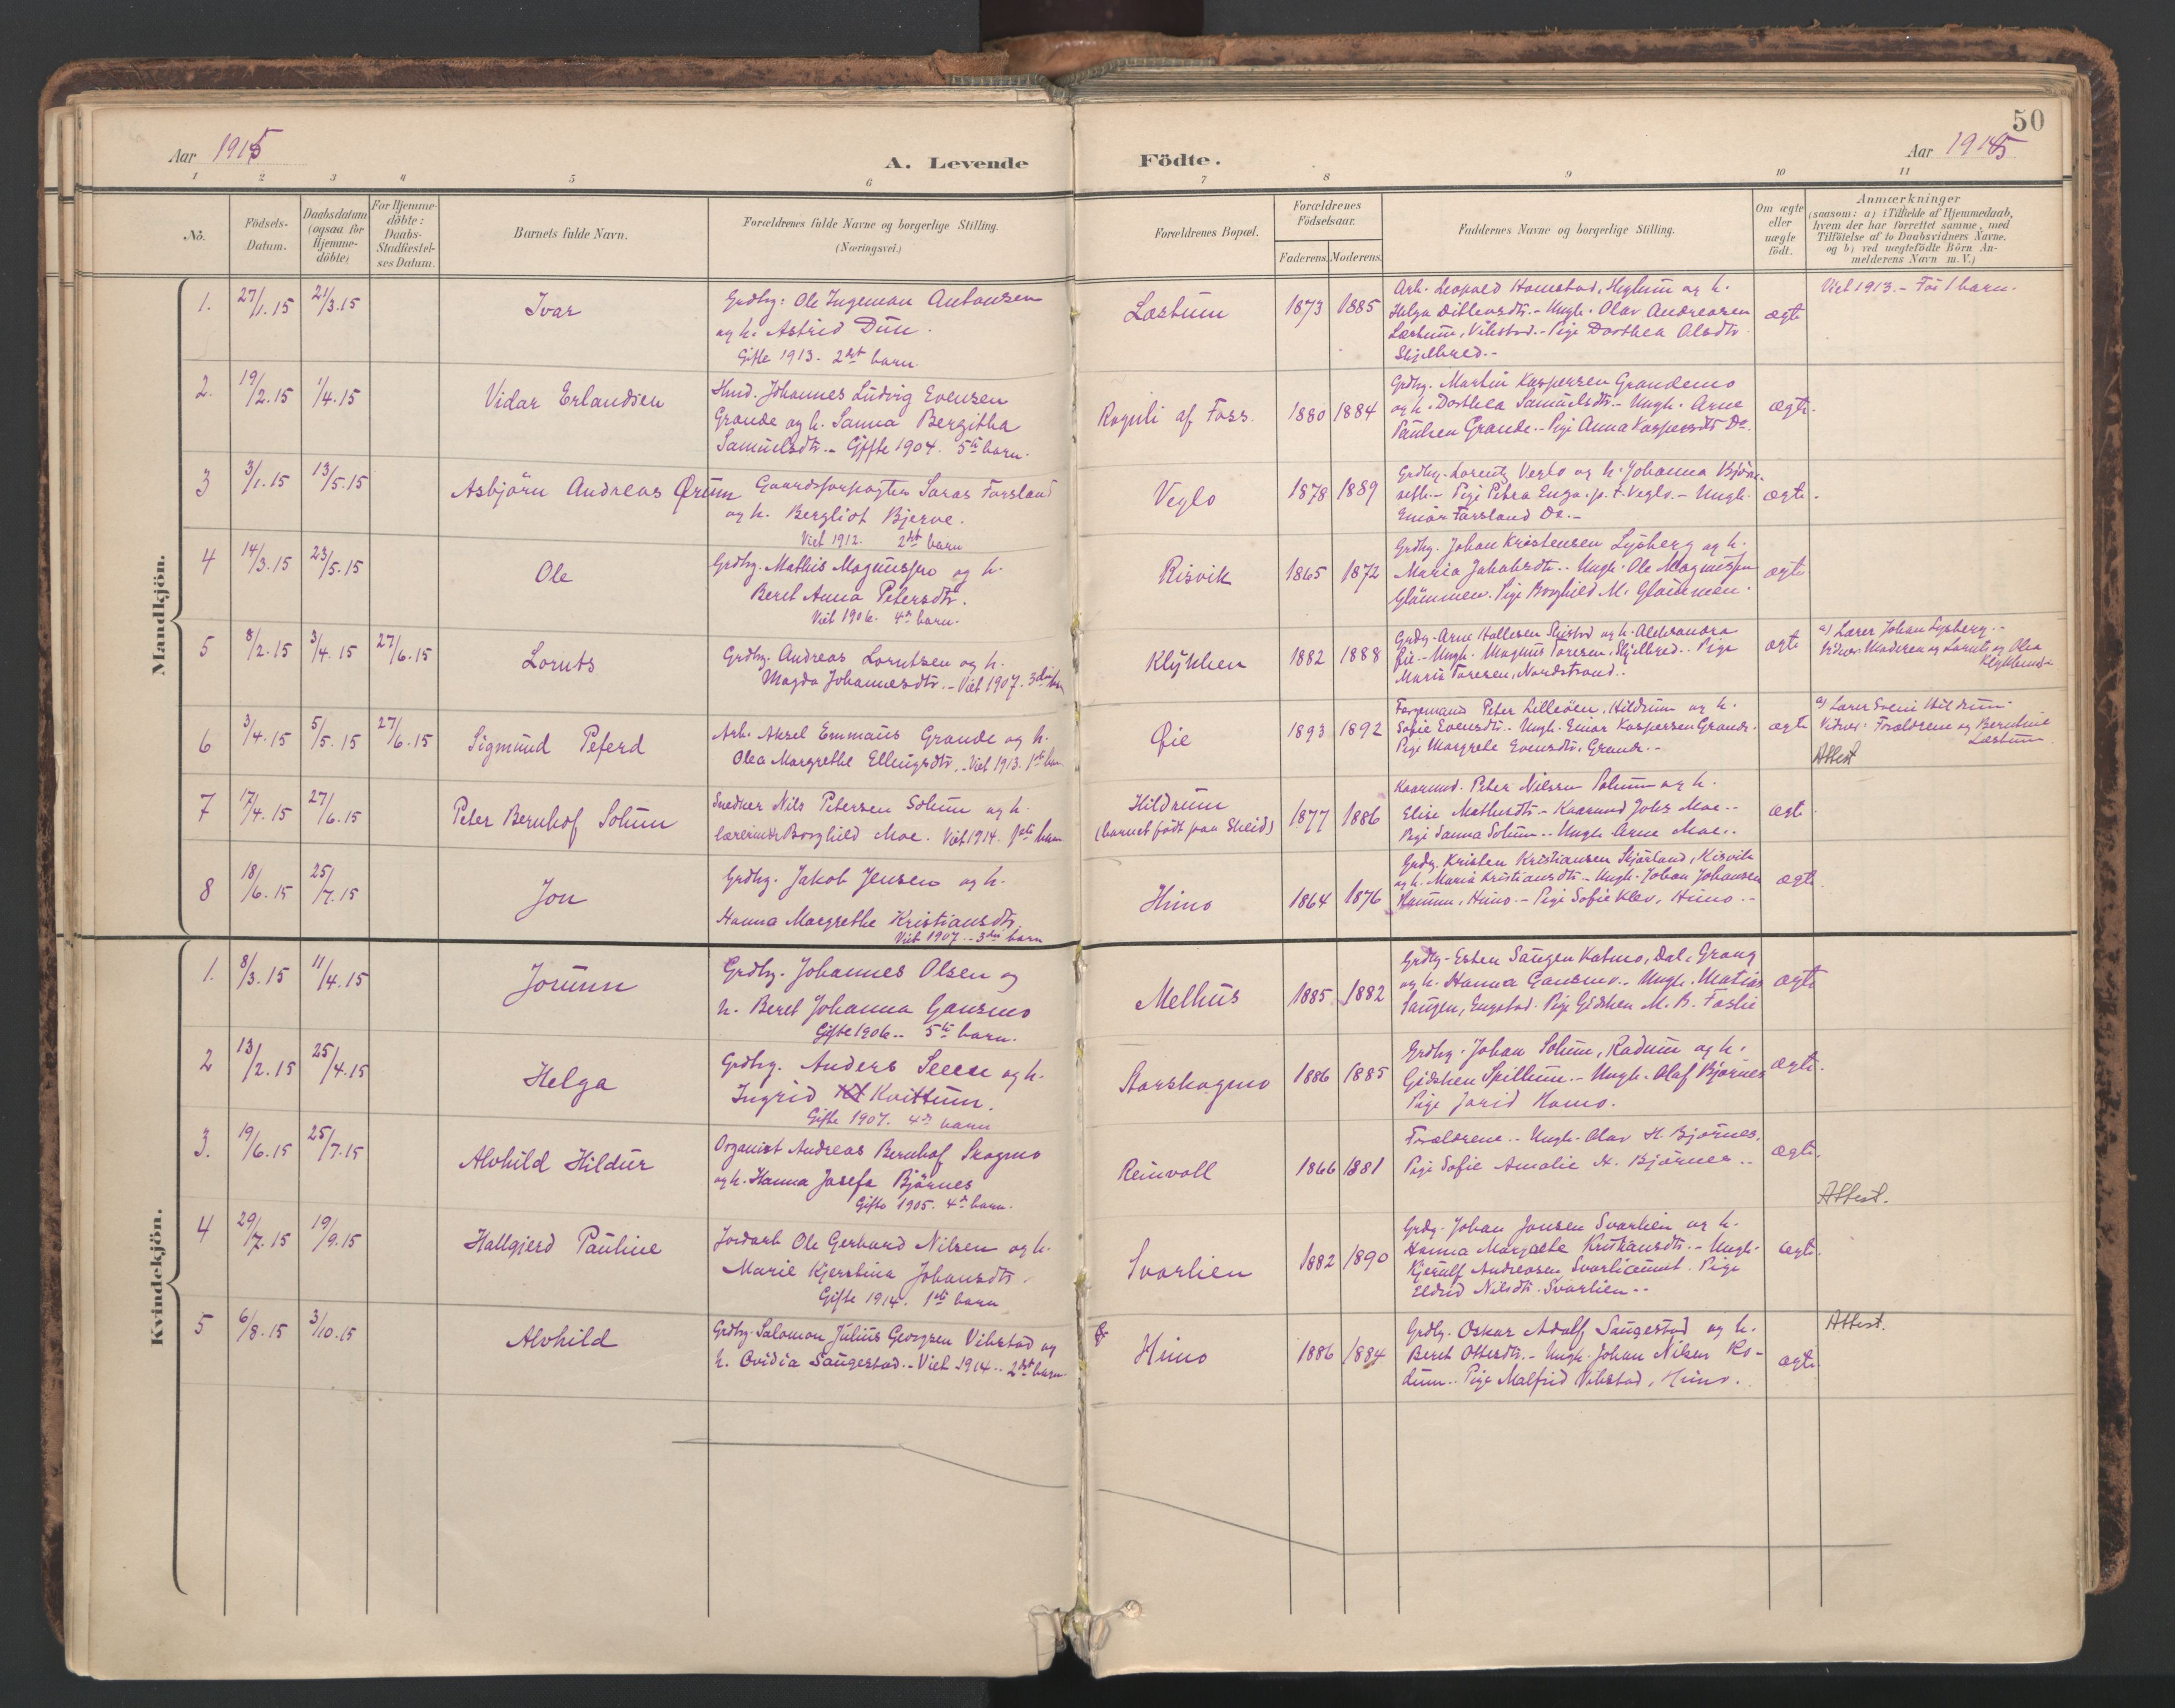 50
Aar 1915
A. Levende
Födte.
Aar 1915
1 2 3 4 5 6 7 8 9 10 11
No.
Födsels-
Datum.
Daabsdatum
(ogsaa for
Hjemme-
döbte)
For Hjemme-
döbte:
Daabs-
Stadfæstel-
ses Datum.
Barnets fulde Navn.
Forældrenes fulde Navne og borgerlige Stilling.
(Næringsvei.)
Forældrenes Bopæl.
Forældrenes
Födselsaar.
Faderens. Moderens.
Faddernes Navne og borgerlige Stilling.
Om ægte
eller
uægte
födt.
Anmærkninger
(saasom: a) i Tilfælde af Hjemmedaab,
hvem der har forrettet samme, med
Tilföielse af to Daabsvidners Navne.
og b) ved uægtefödte Börn An-
melderens Navn m. V.)
Mandkjön.
1. 27/1.15 21/3.15
Ivar
Grdbg: Ole Ingeman Antonsen
og h. Astrid Dun.
Gifte 1913. 2det barn.
Læstum
1873 1885
Arb. Leopold Homstad, Heglum og h.
Helga Ditlevsdtr. - Ungk. Olav Andreasen
Læstum, Vibstad. - Pige Dorthea Olsdtr.
Skjelbred. -
ægte
Viet 1913. - Før 1 barn.
2. 19/2.15 1/4.15
Vidar Erlandsen
Hmd. Johannes Ludvig Evensen
Grande og h. Sanna Bergitha
Samuelsdtr. - Gifte 1904. 5te barn.
af Foss.
1880 1884
Grdbg. Martin Kaspersen Grandemo
og h. Dorthea Samuelsdtr. - Ungk. Arne
Paulsen Grande. - Pige Anna Kaspersdtr Do.
ægte.
3 3/1.15 13/5.15
Asbjörn Andreas Ørum
Gaardsforpagter Farsland
og h. Bergliot Bjerve.
Viet 1912. 2det barn
Veglo
1878 1889
Grdbg. Lorentz Veglo og h. Johanna
Pige Petra Enga. p. t. Veglo. - Ungk.
Einar Farsland Do. -
ægte.
4 14/3.15 23/5.15
Ole
Grdbg. Mathis og h.
Beret Anna Petersdtr.
Viet 1906. 4de barn.
Risvik
1865 1872
Grdbg. Johan Kristensen Lysberg og h.
Maria Jakobsdtr. - Ungk. Ole
Glömmen. Pige Borghild M. Glömmen.
ægte
5 8/2.15 3/4.15 27/6.15
Loruts
Grdbg. Andreas Lorntsen og h.
Magda Johannesdtr. - Viet 1907. 3die barn
Klykken
1882 1888
Grdbg. Arne Hallesen og h. Aleksandra
Øie. - Ungk. Magnus Toresen, Skjelbred. - Pige
Maria Toresen, Nordstrand. -
ægte
a) Lærer Johan Lysberg. -
Vidner Moderen og og Olea
6 3/4.15 5/5.15 27/6.15
Sigmund Peferd
Arb. Aksel Emmaus Grande og h.
Olea Margrethe Ellingsdtr. - Viet 1913. 1ste barn
Øie
1893 1892
Peter Lilleöen, Hildrum og h.
Sofie Evensdtr. - Ungk. Einar Kaspersen Grande.
Pige Margrete Evensdtr. Grande. -
ægte
a) Lærer Svein Hildrum.
Vidner: Forældrene og
Læstum
Attest
7 17/4.15 27/6.15
Peter Bernhof Solum
Snedker Nils Petersen Solum og h.
lærerinde Borghild Moe. Viet 1914. 1ste barn
Hildrum
(barnet født paa Skeid)
1877 1886
Kaarmd. Peter Nilssen Solum og h.
Elise - Kaarmd Johs Moe. -
Pige Sanna Solum. - Ungk. Arne Moe. -
ægte.
8 18/6.15 25/7.15
Jon
Grdbg. Jakob Jensen og h.
Hanna Margrethe Kristiansdtr.
Viet 1907. - 3die barn
Himo
1864 1876
Grdbg. Kristen Kristiansen Risvik
og h. Maria Kristiansdtr. - Ungk. Johan Johansen
Himo. - Pige Sofie Klev, Himo. -
ægte.
Kvindekjön.
1. 8/3.15 11/4.15
Jorunn
Grdbg. Johannes Olsen og
h. Beret Johanna Gansmo
Gifte 1906. - 5te barn.
Melhus
1885 1882
Grdbg. Esten Saugen Dal. Grong
og h. Hanna Gansmo. - Ungk. Matias
Saugen, Engstad. Pige Gidsken M. B.
ægte
2 13/2.15 25/4.15
Helga
Grdbg. Anders og h.
Ingrid Kvittum.
Gifte 1907. 4de barn
1886 1885
Grdbg. Johan Solum, Radum og h.
Gidsken Spillum. - Ungk. Olaf Bjørnes
Pige Jorid Homo.
ægte.
3. 19/6.15 25/7.15
Alvhild Hildur
Organist Andreas Bernhof Skogmo
og h. Hanna Josefa Björnes
Gifte 1905. 4de barn.
Reinvoll
1866 1881
Forældrene. - Ungk. Olav H. Björnes.
Pige Sofie Amalie H. Björnes. -
ægte.
Attest.
4 29/7.15 19/9.15
Hallgjerd Pauline
Jordarb Ole Gerhard Nilsen og h.
Marie Kjerstina Johansdtr.
Gifte 1914. 1ste barn
Svarlien
1882 1890
Grdbg. Johan Jonsen Svarlien og h.
Hanna Margrete Kristiansdtr. - Ungk.
Kjerulf Andreasen Pige
Eldrid Nilsdtr. Svarlien. -
ægte.
5 6/8.15 3/10.15
Alvhild
Grdbg. Salomon Julius Georgsen Vibstad og
h. Ovidia Saugestad. - Viet 1914. - 2det barn.
Himo
1886 1884
Grdbg. Oskar Adolf Saugestad og h.
Beret Ottersdtr. - Ungk. Johan Nilsen Ro-
dum. - Pige Malfrid Vibstad, Himo.
ægte.
Attest.